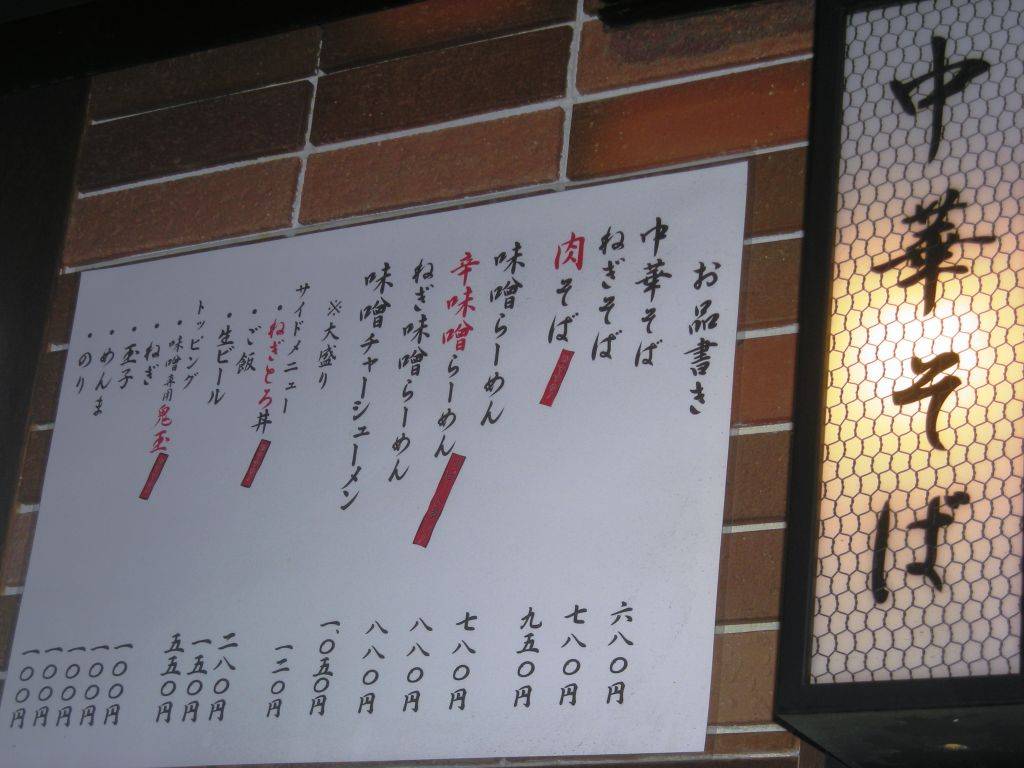 中華そば
お品書き
中華そば 六八〇円
ねぎそば 七八〇円
肉そば 九五〇円
味噌らーめん 七八〇円
辛味噌らーめん 八八〇円
ねぎ味噌らーめん 八八〇円
味噌チャーシューメン 一、〇五〇円
※大盛り 一二〇円
サイドメニュー
・ねぎとろ丼 二八〇円
・ご飯 一五〇円
・生ビール 五五〇円
トッピング
・味噌専用鬼玉 一〇〇円
・ねぎ 一〇〇円
・玉子 一〇〇円
・めんま 一〇〇円
・のり 一〇〇円